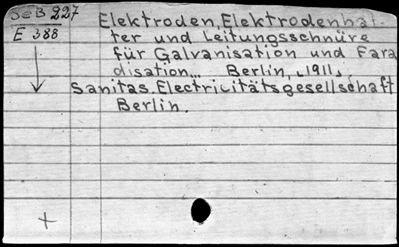 SEB 227
E 388
Elektroden, Elektrodenhal-
ter und Leitungsschnüre
für Galvanisation und Fara
disation... Berlin, 1911,
Sanitas Electricitätsgesellschaft
Berlin.